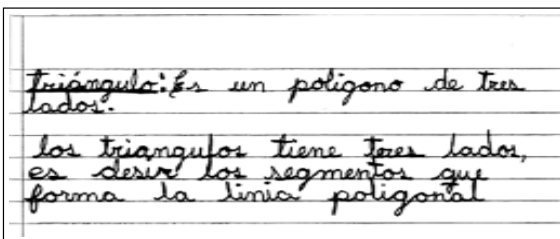 triángulo: Es un poligono de tres
lados.
los triangulos tiene teres lados,
es desir los segmentos que
forma la linia poligonal